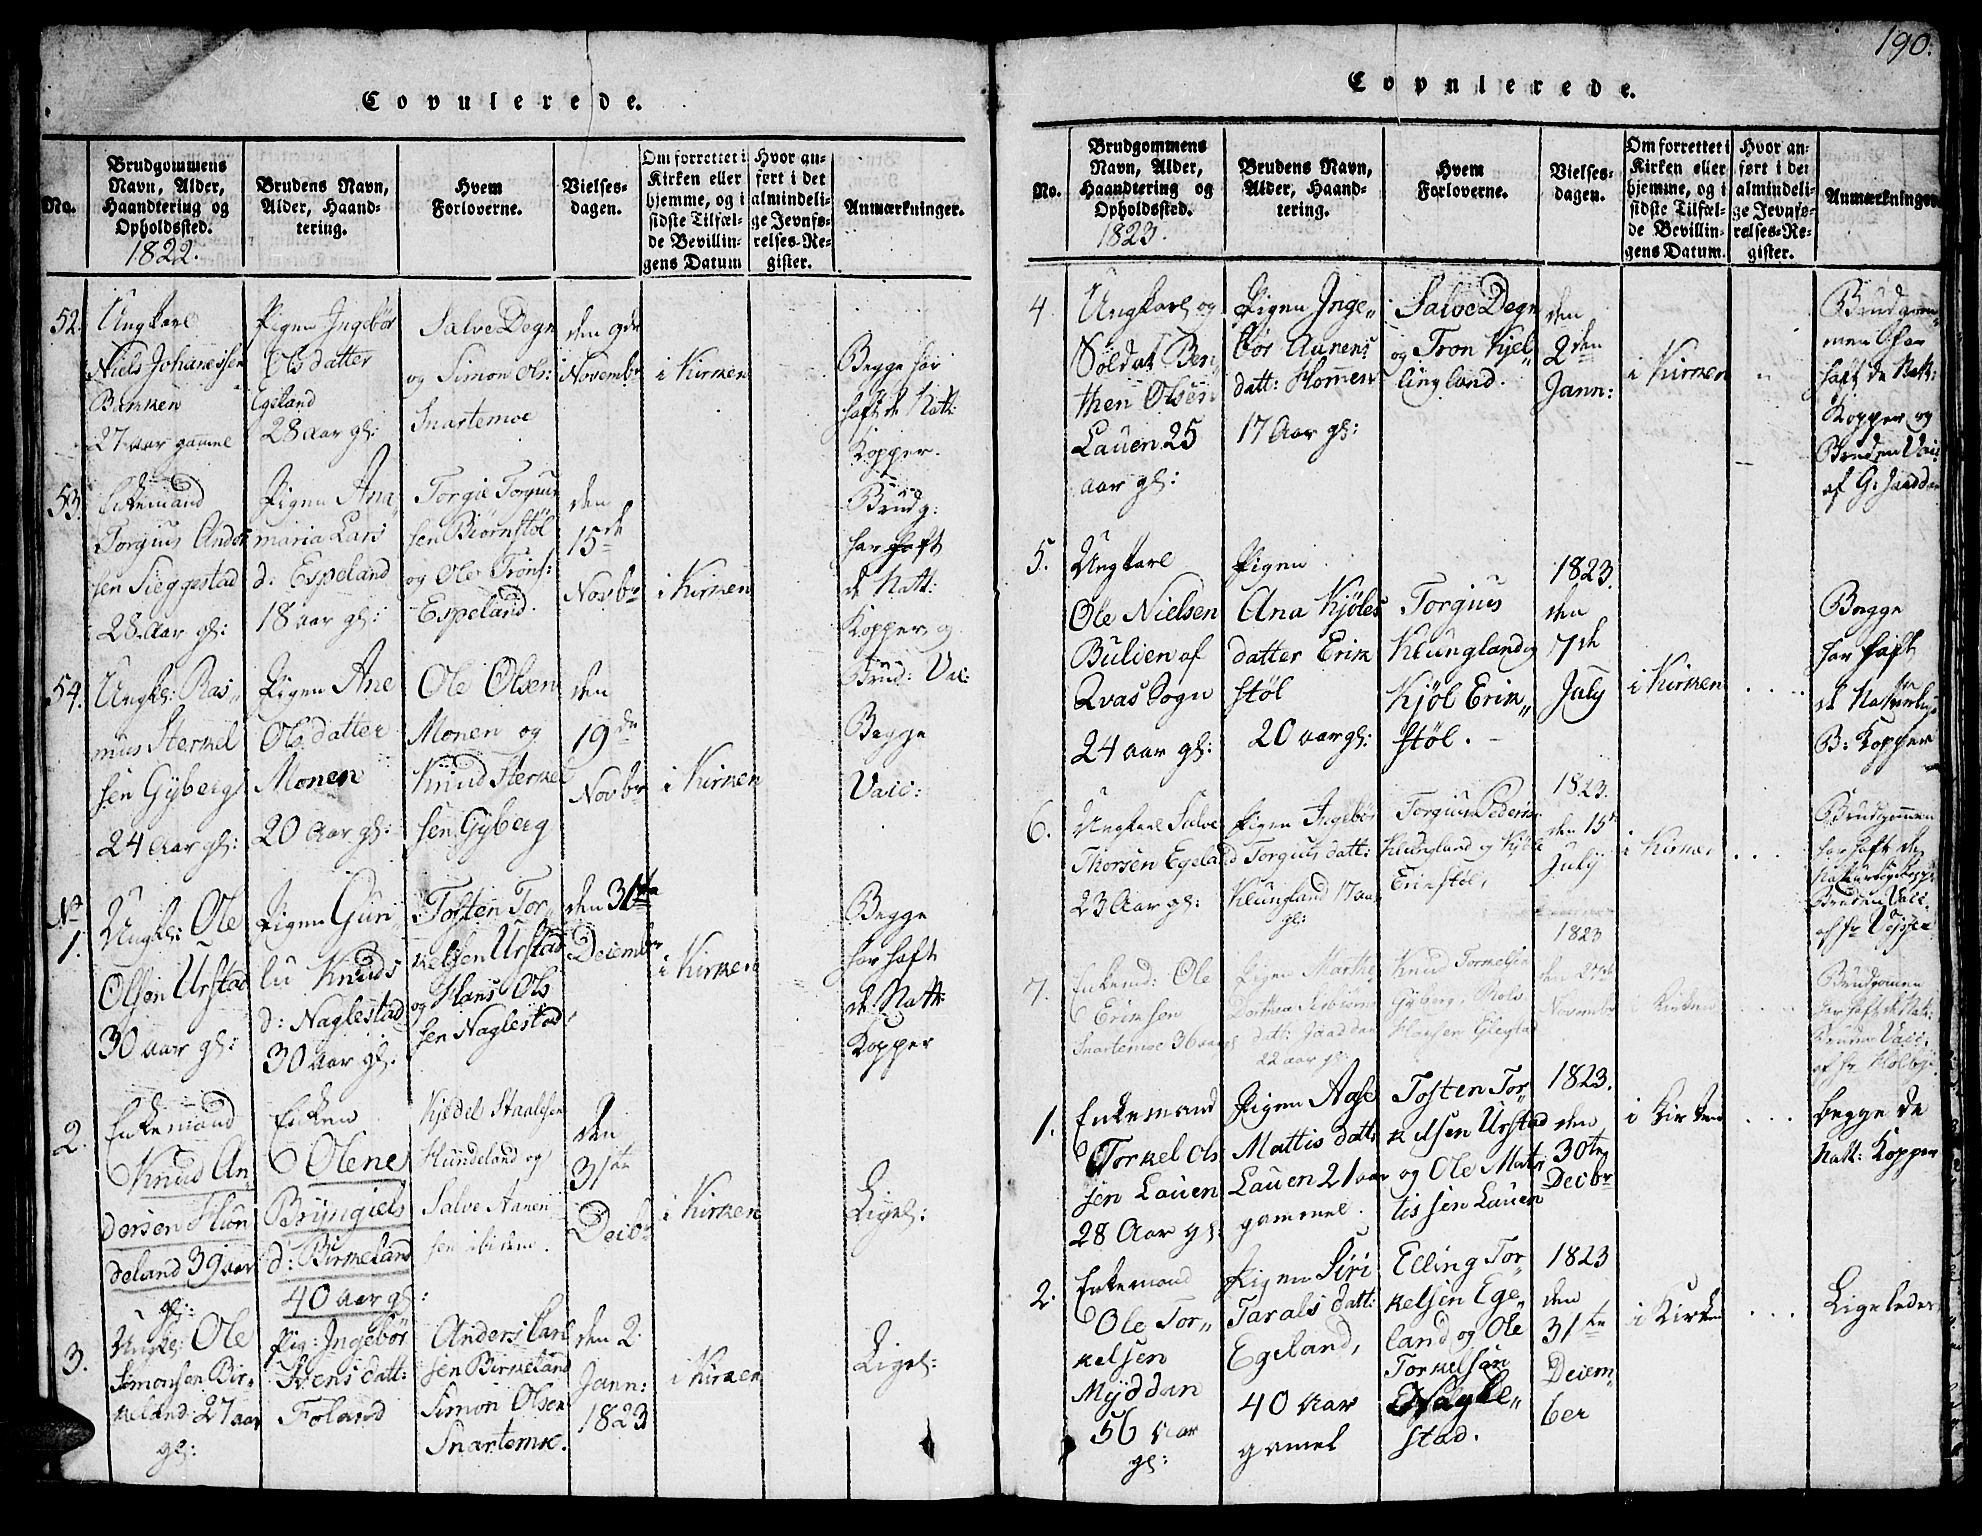 190.
Copulerede.
No.
Brudgommens Navn, Alder, Haandtering og Opholdssted.
1822.
Brudens Navn, Alder, Haandtering.
Hvem Forloverne.
Vielsesdagen.
Om forrettet i Kirken eller hjemme, og i sidste Tilfælde Bevillingens Datum
Hvor anført i det almindelige Jevnførelses-Register.
Anmærkninger.
52.
Ungkarl
Niels Johanessen
Bakken
27 aar gammel
Pigen Ingebór
Olsdatter
Egeland
28 aar gl:
Salve Degn
og Simon Ols:
Snartemoe
den 9de
Novembr
i Kirken
Begge har
haft de Natt:
Kopper.
53.
Enkemand
Torgius Anders
sen Sieggestad
28 Aar gl:
Pigen Ana
maria Lars
d: Espeland
18 aar gl:
Torgie Torgius
sen Biørnstøl
og Ole Trons:
Espeland.
den
15de
Novbr
i Kirken
Brudg:
har haft
de Natt:
Kopper, og
Brud: Vac:
54.
Ungk: Ras„
mus Sterkel
sen Gyberg
24 Aar gl:
Pigen Ane
Olsdatter
Monen
20 Aar gl:
Ole Olsen
Monen og
Knud Sterkel
sen Gyberg
den
19de
Novbr
i Kirken
Begge
Vacc:
No
1.
Ungk: Ole
Olsen Urstad
30 aar gl:
Pigen Gun„
lu Knuds
d: Naglestad
30 Aar gl.
Tosten Tor„
kelsen Urstad
og Hans Ols
sen Naglestad
den 31te
Decembr
i Kirken
Begge
har haft
de Natt:
Kopper
2.
Enkemand
Knud An„
dersen Hun
deland 39 aar
gl:
Enken
Olene
Bryngiels
d: Birkeland
40 aar gl:
Kjedel Staalesen
Hundeland og
Salve Aanen
sen ibidem.
den
31te
Decbr
i Kirken
Ligel:
3.
Ungk: Ole
Simonsen Bir„
keland 27 aar
gl:
Pig: Ingebór
Svens datt:
Foland
Anders Carl
sen Birkeland
Simon Olsen
Snartemoe.
den 2.
Jann:
1823
i Kirken
Ligel:
Copulerede.
No.
Brudgommens Navn, Alder, Haandtering og Opholdssted.
1823.
Brudens Navn, Alder, Haandtering.
Hvem Forloverne.
Vielsesdagen.
Om forrettet i Kirken eller hjemme, og i sidste Tilfælde Bevillingens Datum.
Hvor anført i det almindelige Jevnførelses-Register.
Anmærkninger.
4
Ungkarl og
Soldat Ben
then Olsen
Lauen 25
aar gl:
Pigen Inge„
bór Aanens
datt: Homen
17 Aar gl:
Salve Degn
og Tron Kjel
lingland.
den
2den
Jann:
i Kirken
Brudgom„
men har
haft de Natt:
Kopper og
Bruden Vac:
5.
Ungkarl
Ole Nielsen
Bulien af
Qvas Sogn
24 aar gl:
Pigen
Ana Kjøls
datter Erik
støl
20 aar gl:
Torgius
Klungland og
Kjøl Erik„
støl.
1823.
den
7de
July
i Kirken
Begge
har haft
de Naturlige
B: Kopper
6.
Ungkarl Salve
Thorsen Egeland
23 Aar gl:
Pigen Ingebór
Torgius datt:
Klungland 17 aar
gl:
Torgius Peders:
Klungland og Kjøl
Erikstøl.
1823.
den 15de
July
i Kirken
Brudgommen
har haft de
Naturlige Kopp:
Bruden Vacc:
7.
Enkemd: Ole
Eriksen
Snartemoe 36 aar gl
Pigen Marthe
22 aar gl:
Knud Torkelsen
Gyberg,
1823
den 27de
November
i Kirken
Brudgommen
har haft de Nat:
Bruden Vacc:
1.
Enkemand
Torkel Ols
sen Lauen
28 Aar gl:
Pigen Aase
Mattis datt:
Lauen 21 aar
gammel.
Tosten Tor„
kelsen Urstad
og Ole Mat„
tissen Lauen
1823.
den
30te
Decbr
i Kirken
begge de
Natt: Kopper
2.
Enkemand
Ole Tor„
kelsen
Myddan
56 Aar
gl:
Pigen Siri
Tarals datt:
Egeland,
40 Aar
gamel
Elling Tor„
kelsen Ege„
land og Ole
Torkelsen
Nagle„
stad.
1823
den
31te
Decem„
ber
i Kirken
Ligeledes